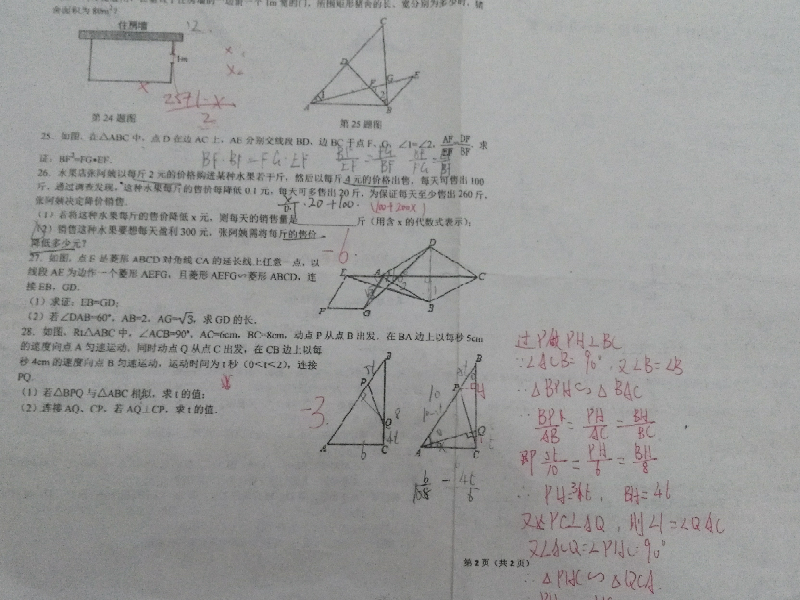 余面积为80m²?
住房墙
1m
第24题图
第25题图
25. 如图, 在△ABC中, 点D在边AC上, AE分别交线段BD、边BC于点F、G, ∠1=∠2, AF/EF=DF/BF. 求
证: BF²=FG•EF.
BF·BF=FG·EF
26. 水果店张阿姨以每斤2元的价格购进某种水果若干斤, 然后以每斤4元的价格出售, 每天可售出100
斤. 通过调查发现, 这种水果每斤的售价每降低0.1元, 每天可多售出20斤, 为保证每天至少售出260斤,
张阿姨决定降价销售.
x/0.1·20+100.
(100+200x)
(1) 若将这种水果每斤的售价降低x元, 则每天的销售量是 斤 (用含x的代数式表示);
(2) 销售这种水果要想每天盈利300元, 张阿姨需将每斤的售价
降低多少元?
-6
27. 如图, 点E是菱形ABCD对角线CA的延长线上任意一点, 以
线段AE为边作一个菱形AEFG, 且菱形AEFG∽菱形ABCD, 连
接EB、GD.
(1) 求证: EB=GD;
(2) 若∠DAB=60°, AB=2, AG=√3, 求GD的长.
28. 如图, Rt△ABC中, ∠ACB=90°, AC=6cm, BC=8cm, 动点P从点B出发, 在BA边上以每秒5cm
的速度向点A匀速运动, 同时动点Q从点C出发, 在CB边上以每
秒4cm的速度向点B匀速运动, 运动时间为t秒 (0<t<2), 连接
PQ.
(1) 若△BPQ与△ABC相似, 求t的值;
(2) 连接AQ、CP, 若AQ⊥CP, 求t的值.
-3
过P做PH⊥BC
∵∠ACB=90°, 又∠B=∠B
∴△BPH∽△BAC
∴BP/AB=PH/AC=BH/BC
即5t/10=PH/6=BH/8
∴PH=3t, BH=4t
又∵PC⊥AQ, 则∠1=∠QAC
又∠ACQ=∠PHC=90°
∴△PHC∽△QCA
第2页 (共2页)